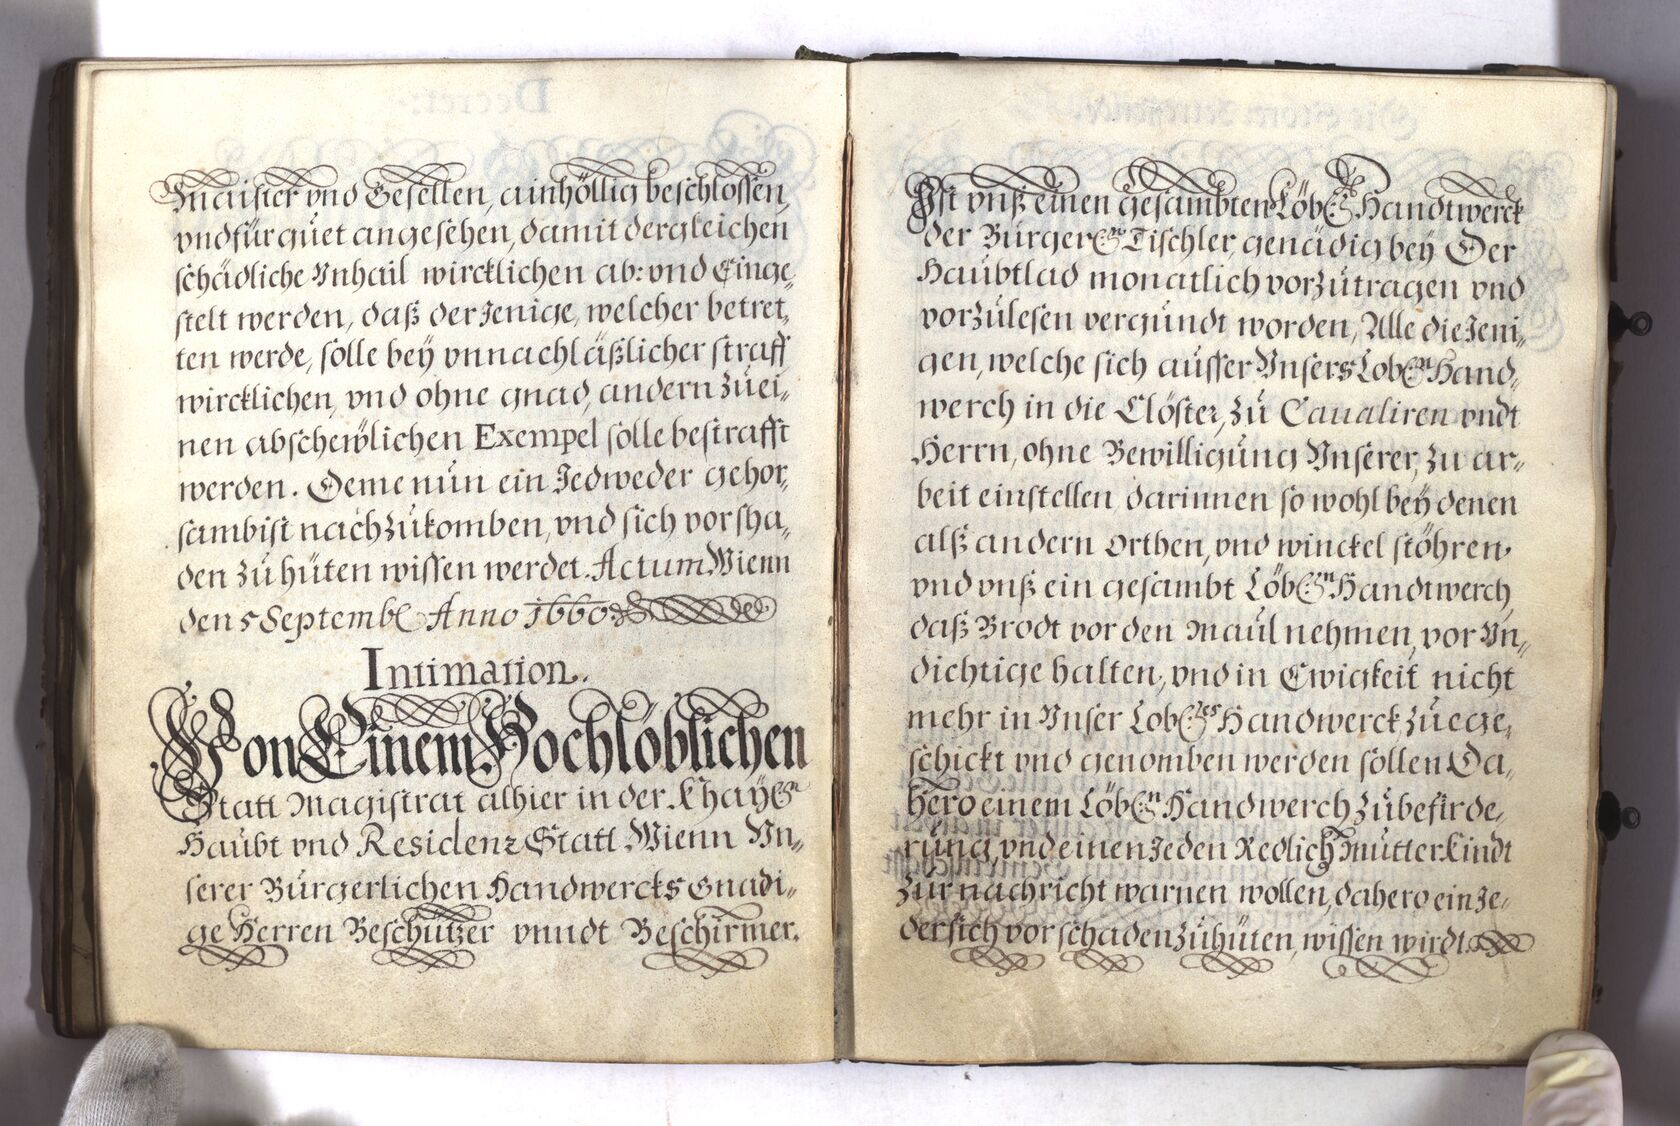 Maister vnd Gesellen, ainhöllig beschlossen,
vnd für guet angesehen, damit dergleichen
schädliche Vnhail wircklichen ab: vnd Einge„
stelt werden, daß der Jenige, welcher betret„
ten werde, solle bey vnnachläßlicher straff
wircklichen, vnd ohne gnad, andern zu ei„
nen abschewlichen Exempel solle bestrafft
werden. Deme nun ein Jedweder gehor„
sambist nachzukomben, vnd sich vor sha„
den zu hüten wissen werdet. Actum Wienn
den 5 Septemb: Anno 1660.
Intimation.
Von Einem Hochlöblichen
Statt Magistrat alhier in der Khay:n
Haubt vnd Residenz Statt Wienn Vn„
serer Bürgerlichen Handwercks Gnadi„
ge Herren Beschützer vnndt Beschirmer.
Ist vnß einen gesambten Löb:n Handtwerck
der Burger:n Tischler, genädig bey Der
Haubtlad monatlich vorzutragen vnd
vorzulesen vergundt worden, Alle die Jeni„
gen, welche sich ausser Vnsers Lob:n Hand„
werch in die Clöster, zu Caualiren vndt
Herrn, ohne Bewilligung Vnserer, zu ar„
beit einstellen, darinnen so wohl bey denen
alß andern orthen, vnd winckel stöhren,
vnd vnß ein gesambt Löb:n Handtwerch
daß Brodt vor den Maul nehmen, vor Vn„
dichtige halten, vnd in Ewigkeit nicht
mehr in Vnser Lob:es Handwerck zue ge„
schickt vnd genomben werden sollen Da„
hero einem Löb:n Handwerch zu befirde„
rung, vnd einen Jeden Redlich Mutter kindt
zur nachricht warnen wollen, dahero ein Je„
der sich vor schaden zuhüten, wissen wirdt.